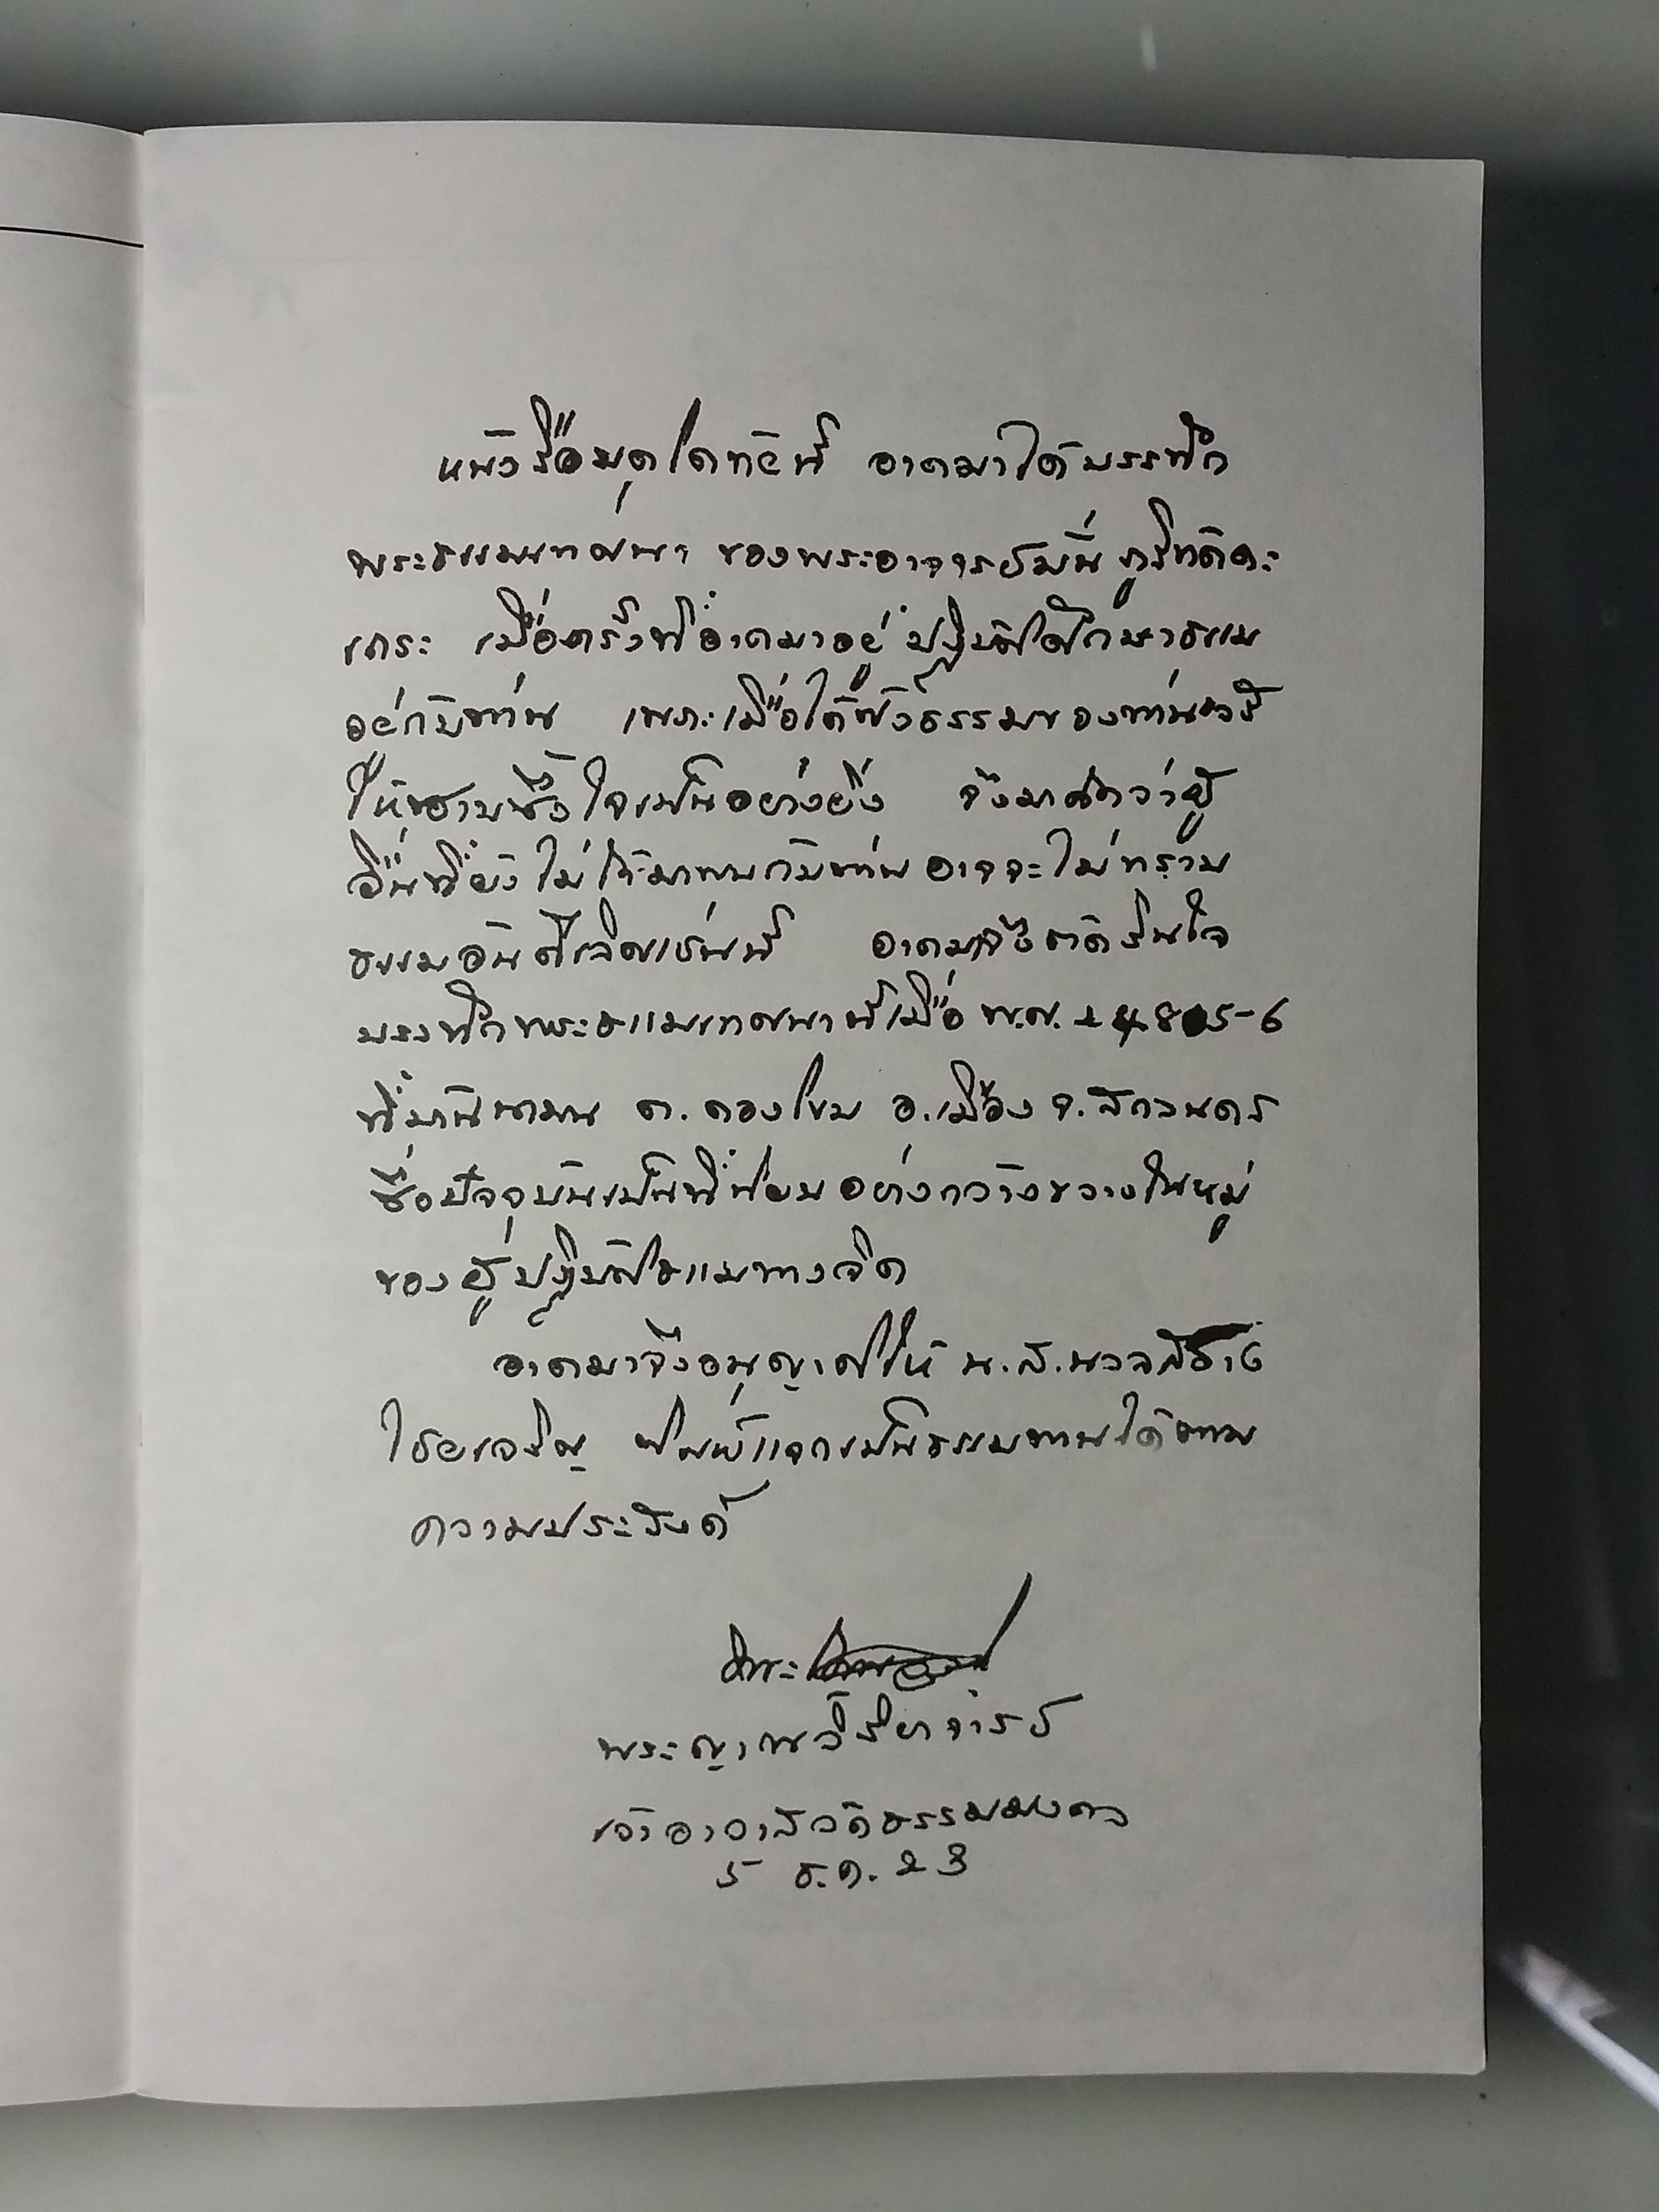 หนังสือมุตโตทัยนี้ อาตมาได้บรรทึก
พระธรรมเทศนา ของพระอาจารย์มั่น ภูริทัตตะ
เถระ เมื่อครั้งที่อาตมาอยู่ปฏิบัติศึกษาธรรม
อยู่กับท่าน เพราะเมื่อได้ฟังธรรมของท่านแล้ว
ให้ซาบซึ้งใจเป็นอย่างยิ่ง จึงมาคิดว่าผู้
อื่นที่ยังไม่ได้มาพบกับท่านอาจจะไม่ทราบ
ธรรมอันดีเลิศเช่นนี้ อาตมาจึงตัดสินใจ
บรรทึกพระธรรมเทศนานี้เมื่อ พ.ศ. 2485-6
ที่บ้านนามน ต. ตองโขบ อ.เมือง จ. สกลนคร
ซึ่งปัจจุบันเป็นที่นิยมอย่างกว้างขวางในหมู่
ของผู้ปฏิบัติธรรมทางจิต
อาตมาจึงอนุญาตให้ น.ส.นวล
ไชยเจริญ พิมพ์แจกเป็นธรรมทานได้ตาม
ความประสงค์
พระญาณวิริยาจารย์
เจ้าอาวาสวัดธรรมมงคล
5 ธ.ค. 23